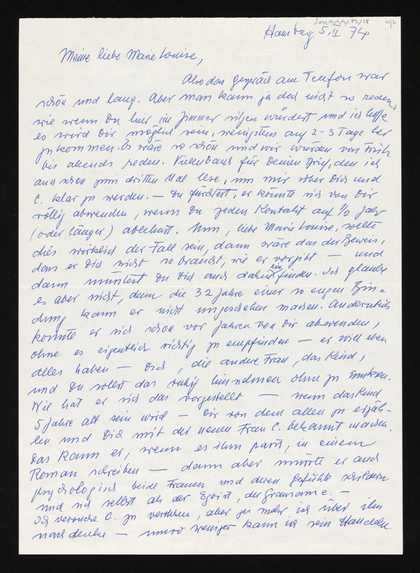 Hamburg 5. II 74
Meine liebe Marie Louise,
Also das Gespräch am Telefon war
schön und lang. Aber man kann ja doch nicht so reden,
wie wenn Du hier im Zimmer sitzen würdest und ich hoffe
es wird Dir möglich sein, wenigstens auf 2-3 Tage her
zu kommen. Es wäre so schön und wir würden von früh
bis abends reden. Vielen Dank für Deinen Brief, den ich
auch schon zum dritten Mal lese, um mir über Dich und
C. klar zu werden. – Du fürchtest, er könnte sich von Dir
völlig abwenden, wenn Du jeden Kontakt auf ½ Jahr
(oder länger) ablehnst. Nun, liebe Marie Louise, sollte
dies wirklich der Fall sein, dann wäre das der Beweis,
dass er Dich nicht so braucht, wie er vorgibt – und
dann müsstest Du Dich auch dahin finden. Ich glaube
es aber nicht, denn die 32 Jahre einer so engen Bin-
dung kann er nicht ungeschehen machen. Andernteils
könnte er sich schon vor Jahren von Dir abwenden,
ohne es eigentlich richtig zu empfinden – er will eben
alles haben – Dich, die andere Frau, das Kind,
und Du sollst das ruhig hinnehmen ohne zu
Wie hat er sich das vorgestellt – wenn das Kind
5 Jahre alt sein wird – Dir von dem allen zu erzäh-
len und Dich mit der neuen Frau C. bekannt machen.
Das kann er, wenn es ihm passt, in einem
Roman schreiben – dann aber müsste er auch
psychologisch beide Frauen und deren Gefühle schildern
und sich selbst als der Egoist, der Grausame. –
Ich versuche C. zu verstehen, aber je mehr ich über ihn
nachdenke – umso weniger kann ich sein Handeln